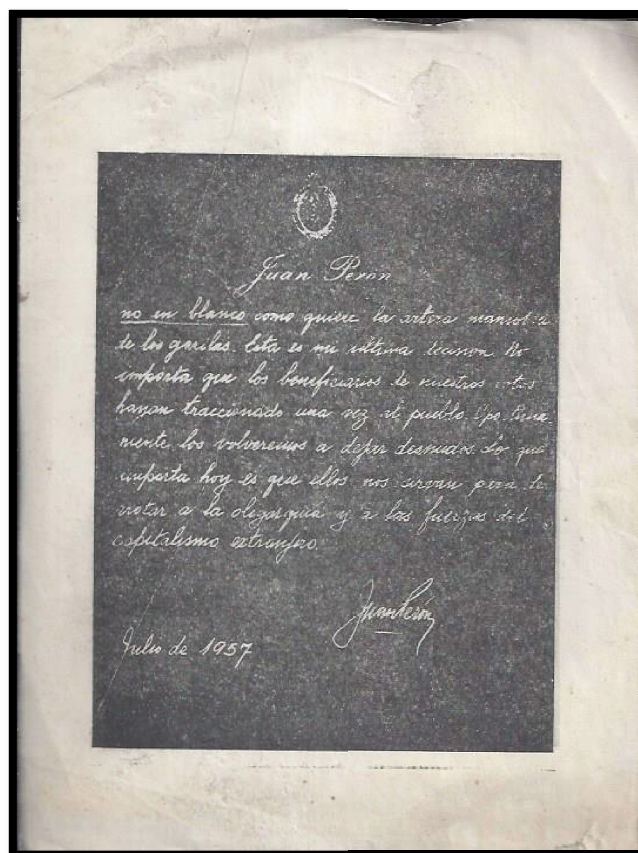 Juan Perón
no en blanco como quiere la artera maniobra
de los gorilas. Esta es mi última decisión. No
importa que los beneficiarios de nuestros votos
hayan traicionado una vez al pueblo.
mente los volveremos a dejar desnudos. Lo que
importa hoy es que ellos nos sirvan para de
rrotar a la oligarquía y a las fuerzas del
capitalismo extranjero.
Juan Perón
Julio de 1957